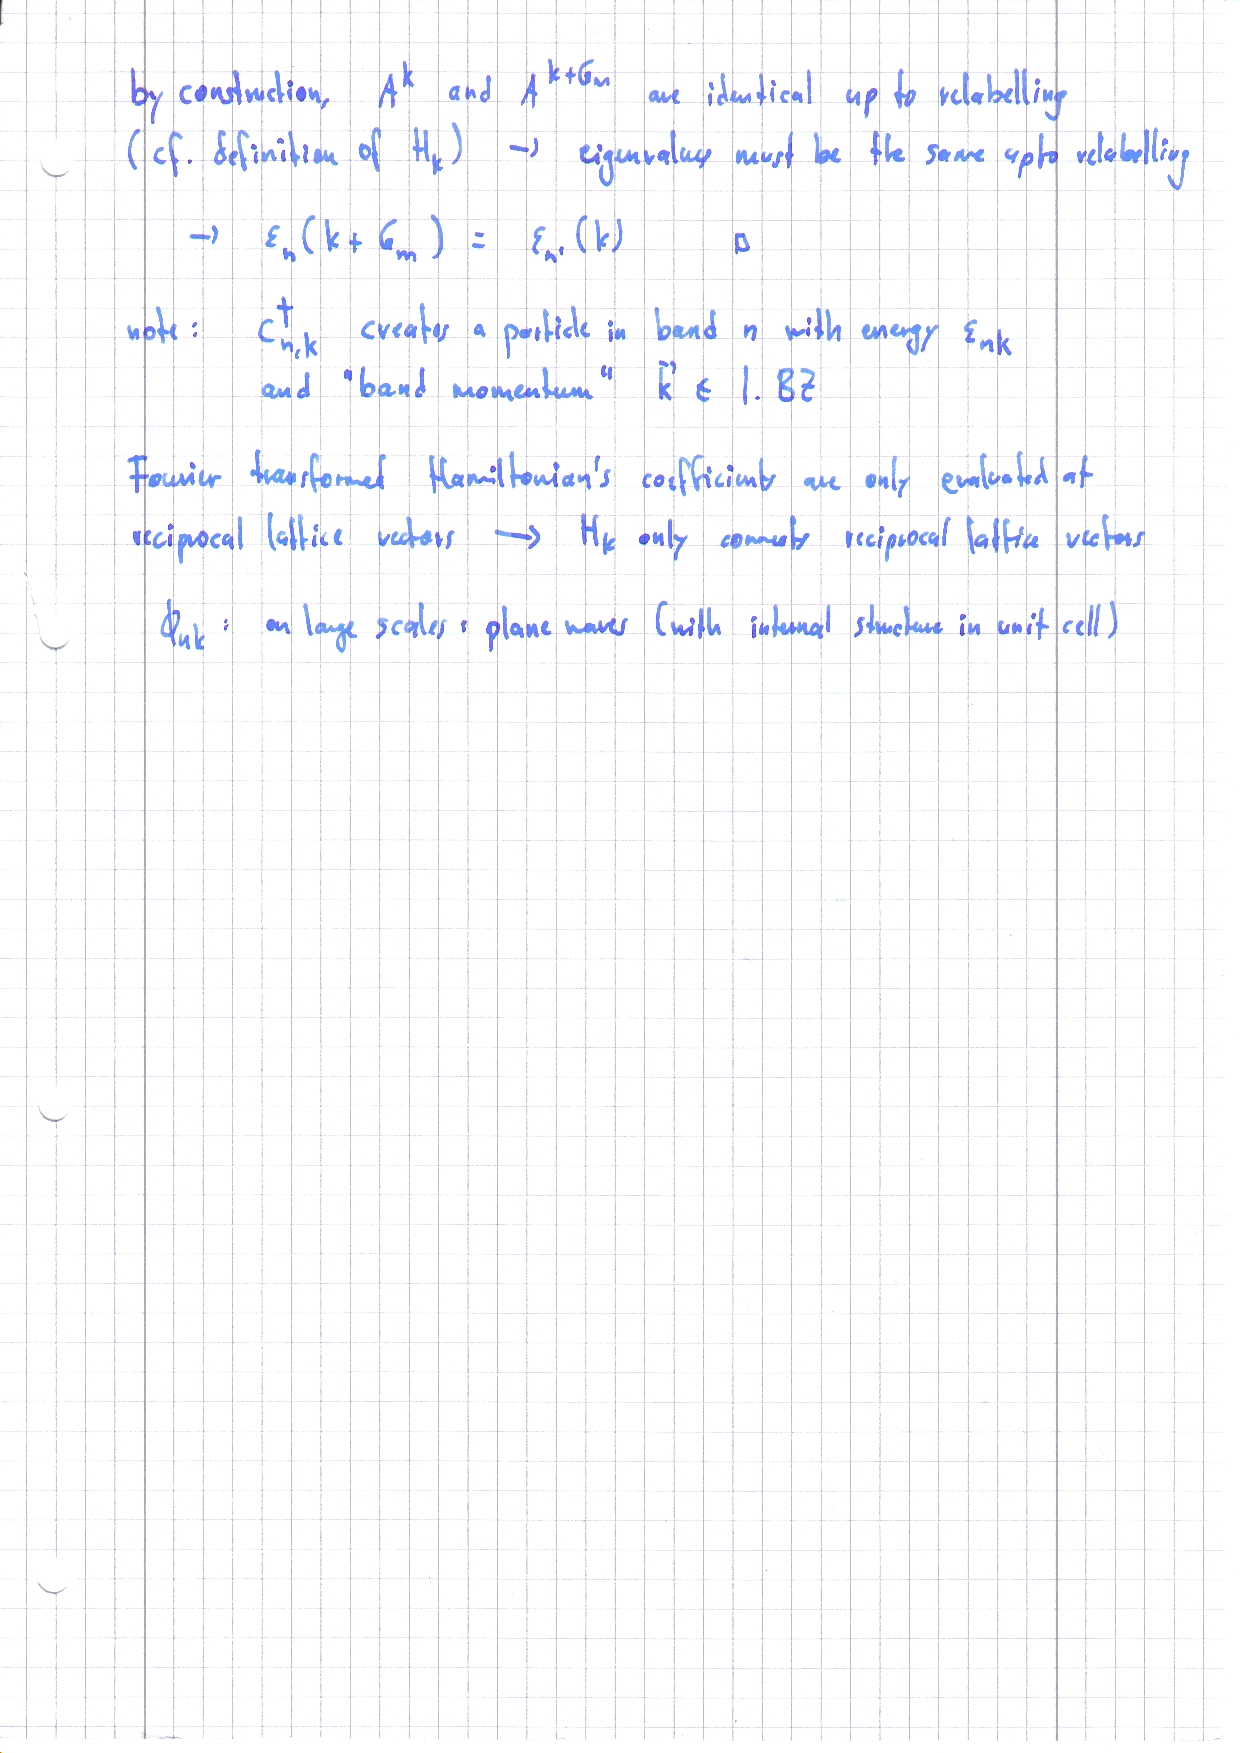 by construction, A^k and A^{k+G_m} are identical up to relabelling
(cf. definition of H_k) → eigenvalues must be the same upto relabelling
→ ε_n(k + G_m) = ε_n'(k) □
note: c†_{n,k} creates a particle in band n with energy ε_{nk}
and "band momentum" k⃗ ∈ 1. BZ
Fourier transformed Hamiltonian's coefficients are only evaluated at
reciprocal lattice vectors ⟶ H_k only connects reciprocal lattice vectors
ϕ_{nk}: on large scales: plane waves (with internal structure in unit cell)